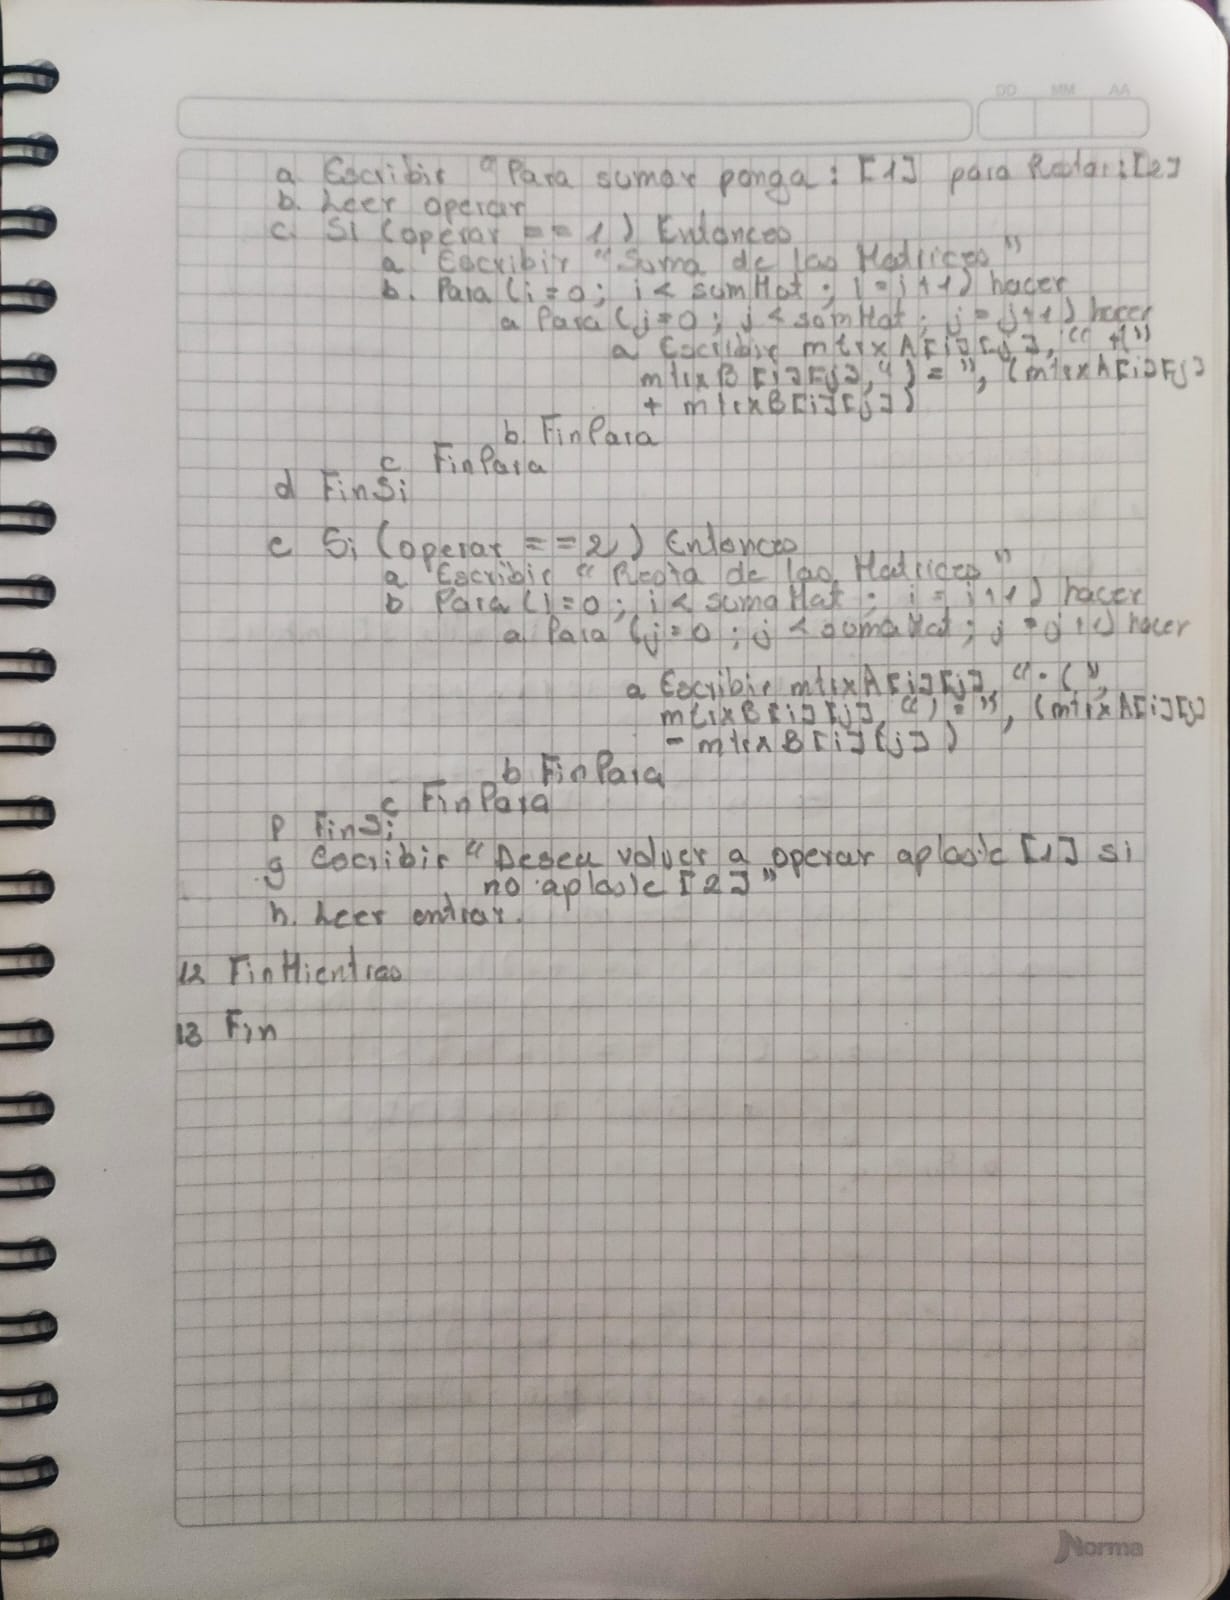 DD MM AA
a Escribir "Para sumar ponga: [1] para Restar: [2]
b. Leer operar
c. Si (operar == 1) Entonces
a Escribir "Suma de las Matrices"
b. Para (i=0; i < sumMat; i=i+1) hacer
a Para (j=0; j < somMat; j=j+1) hacer
a Escribir mtrxA[i][j], "+("
mtrxB[i][j], ") = ", (mtrxA[i][j]
+ mtrxB[i][j])
b. FinPara
c FinPara
d FinSi
e Si (operar == 2) Entonces
a Escribir "Resta de las Matrices"
b Para (i=0; i < sumaMat; i=i+1) hacer
a Para (j=0; j < sumaMat; j=j+1) hacer
a Escribir mtrxA[i][j], "-(",
mtrxB[i][j], ") = ", (mtrxA[i][j]
- mtrxB[i][j])
b FinPara
c FinPara
f FinSi
g Escribir "Desea volver a operar aplaste [1] si
no aplaste [2]"
h. Leer entrar.
12 FinMientras
13 Fin
Norma